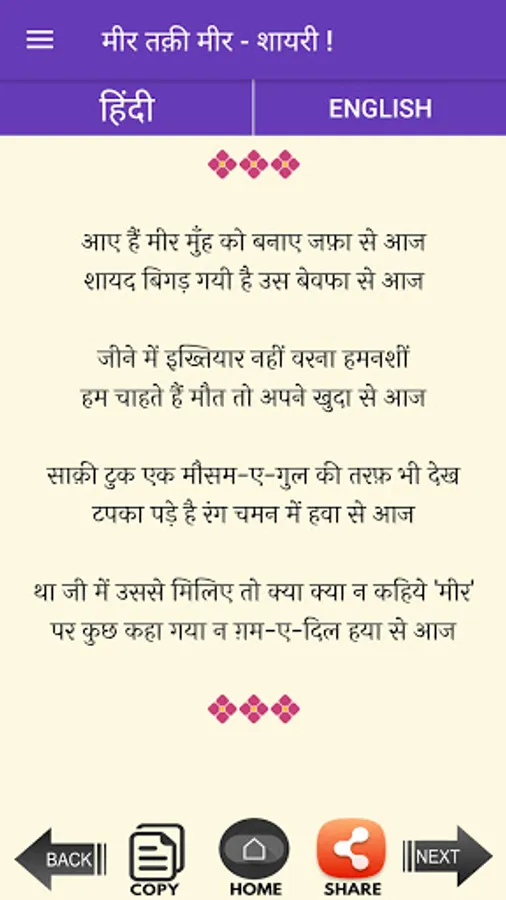 मीर तक़ी मीर - शायरी !
हिंदी
ENGLISH
आए हैं मीर मुँह को बनाए जफ़ा से आज
शायद बिगड़ गयी है उस बेवफा से आज
जीने में इख्तियार नहीं वरना हमनशीं
हम चाहते हैं मौत तो अपने खुदा से आज
साक़ी टुक एक मौसम-ए-गुल की तरफ़ भी देख
टपका पड़े है रंग चमन में हवा से आज
था जी में उससे मिलिए तो क्या क्या न कहिये 'मीर'
पर कुछ कहा गया न ग़म-ए-दिल हया से आज
BACK
COPY
HOME
SHARE
NEXT